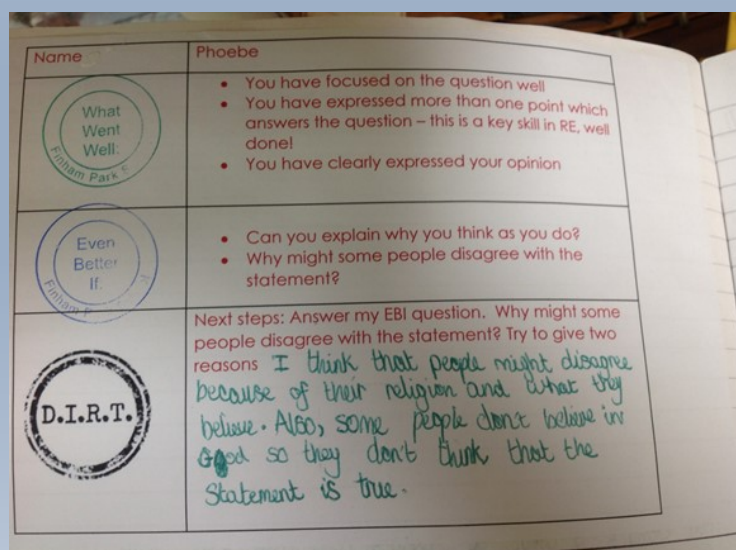 Name
Phoebe
What
Went
Well:
Finham Park
• You have focused on the question well
• You have expressed more than one point which
answers the question – this is a key skill in RE, well
done!
• You have clearly expressed your opinion
Even
Better
If:
Finham
• Can you explain why you think as you do?
• Why might some people disagree with the
statement?
D.I.R.T.
Next steps: Answer my EBI question. Why might some
people disagree with the statement? Try to give two
reasons I think that people might disagree
because of their religion and what they
believe. Also, some people don't believe in
God so they don't think that the
Statement is true.